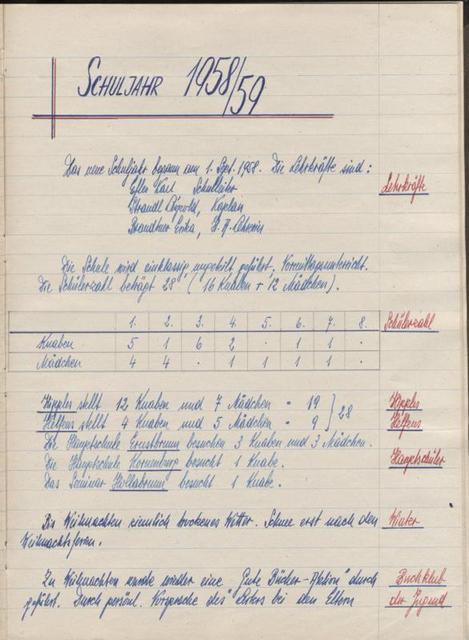 SCHULJAHR 1958/59
Das neue Schuljahr begann am 1. Sept. 1958. Die Lehrkräfte sind:
Lehrkräfte
Karl Schulleiter
Strandl Kaplan
Brandtner Erika,
Die Schule wird einklassig ungeteilt geführt, Vormittagsunterricht.
Die Schülerzahl beträgt 28 (16 Knaben + 12 Mädchen).
1. 2. 3. 4. 5. 6. 7. 8. Schülerzahl
Knaben 5 1 6 2 . 1 1
Mädchen 4 4 . 1 1 1 1
stellt 12 Knaben und 7 Mädchen = 19
stellt 4 Knaben und 5 Mädchen = 9 } 28
Die Hauptschule Ernstbrunn besuchen 3 Knaben und 3 Mädchen.
Die Hauptschule Korneuburg besucht 1 Knabe. Hauptschüler
Das Seminar Hollabrunn besucht 1 Knabe.
Bis Weihnachten ziemlich trockenes Wetter. Schnee erst nach den Winter
Weihnachtsferien.
Zu Weihnachten wurde wieder eine "Gute Bücher-Aktion" durch Buchklub
geführt. Durch persönl. Vorsprache des Leiters bei den Eltern der Jugend